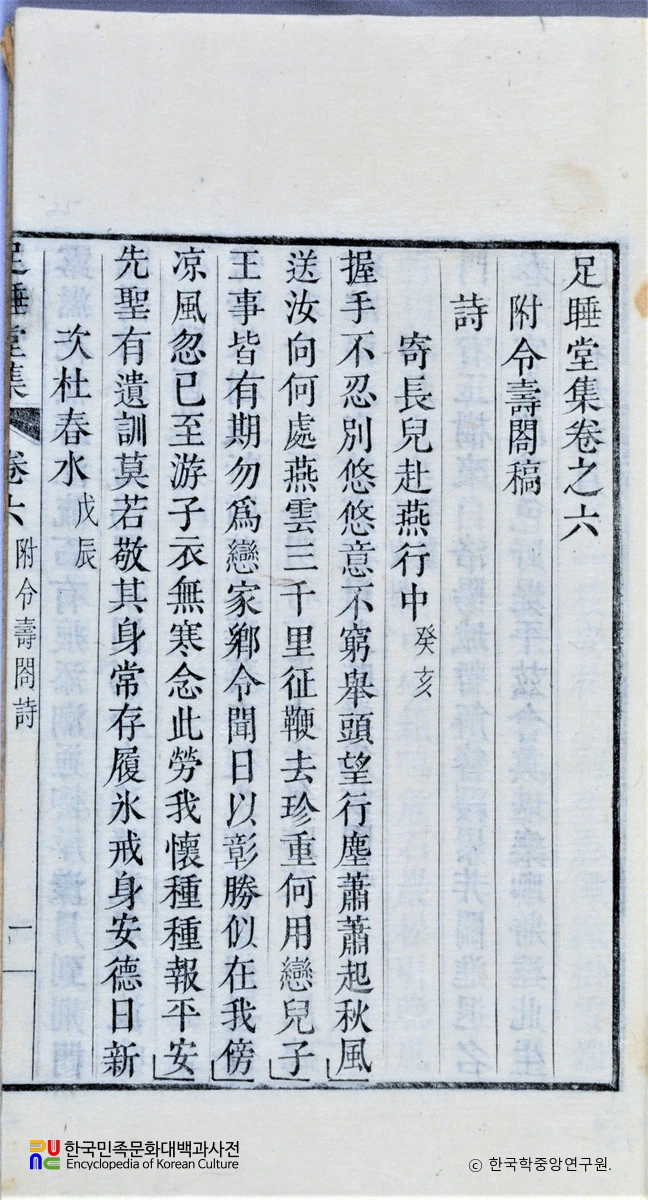 足睡堂集卷之六
附令壽閤稿
詩
寄長兒赴燕行中 癸亥
握手不忍別悠悠意不窮舉頭望行塵蕭蕭起秋風
送汝向何處燕雲三千里征鞭去珍重何用戀兒子
王事皆有期勿爲戀家鄉令聞日以彰勝似在我傍
凉風忽已至游子衣無寒念此勞我懷種種報平安
先聖有遺訓莫若敬其身常存履氷戒身安德日新
次杜春水 戊辰
足睡堂集 卷六 附令壽閤詩 一
한국민족문화대백과사전
Encyclopedia of Korean Culture
© 한국학중앙연구원.